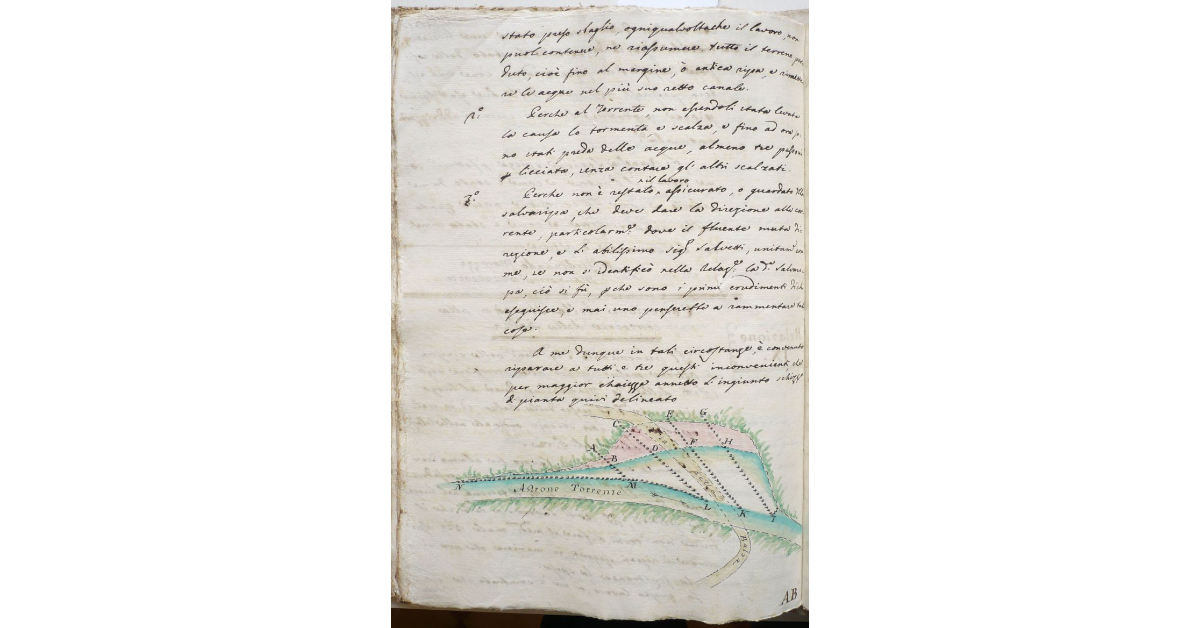 stato preso staglio, ogniqualvoltache il lavoro, non
puol contenere, ne riassumere tutto il terrene per
duto, cioè fino al margine, ò antica ripa, e rimette
re le acque nel più suo retto canale.
2.º Perche al Torrente, non essendoli stata levata
la causa lo tormenta e scalza e fino ad ora
no stati preda delle acque, almeno tre passoni
licciata, senza contare gl' altri scalzati.
3.º Perche non è restato il lavoro assicurato, o guardato
salvaripa, che deve dare la direzione alla cor
rente, particolarm.e dove il fluente muta di
rezione, e L' abilissimo sig.e Salvetti, unitam.e con
me, se non s' identificò nella Relaz.e la d.a salvari
pa, ciò si fù, pche sono i primi erudimenti di chi
eseguisce, e mai uno penserebbe a rammentare tal
cosa.
A me dunque in tali circostanze, è convenuto
riparare a tutti e tre questi inconvenienti che
per maggior chiarezza annetto L' ingiunto schizzo
di pianta quivi delineato
C E G
A B D F H
N M L K I
Astrone Torrente
AB